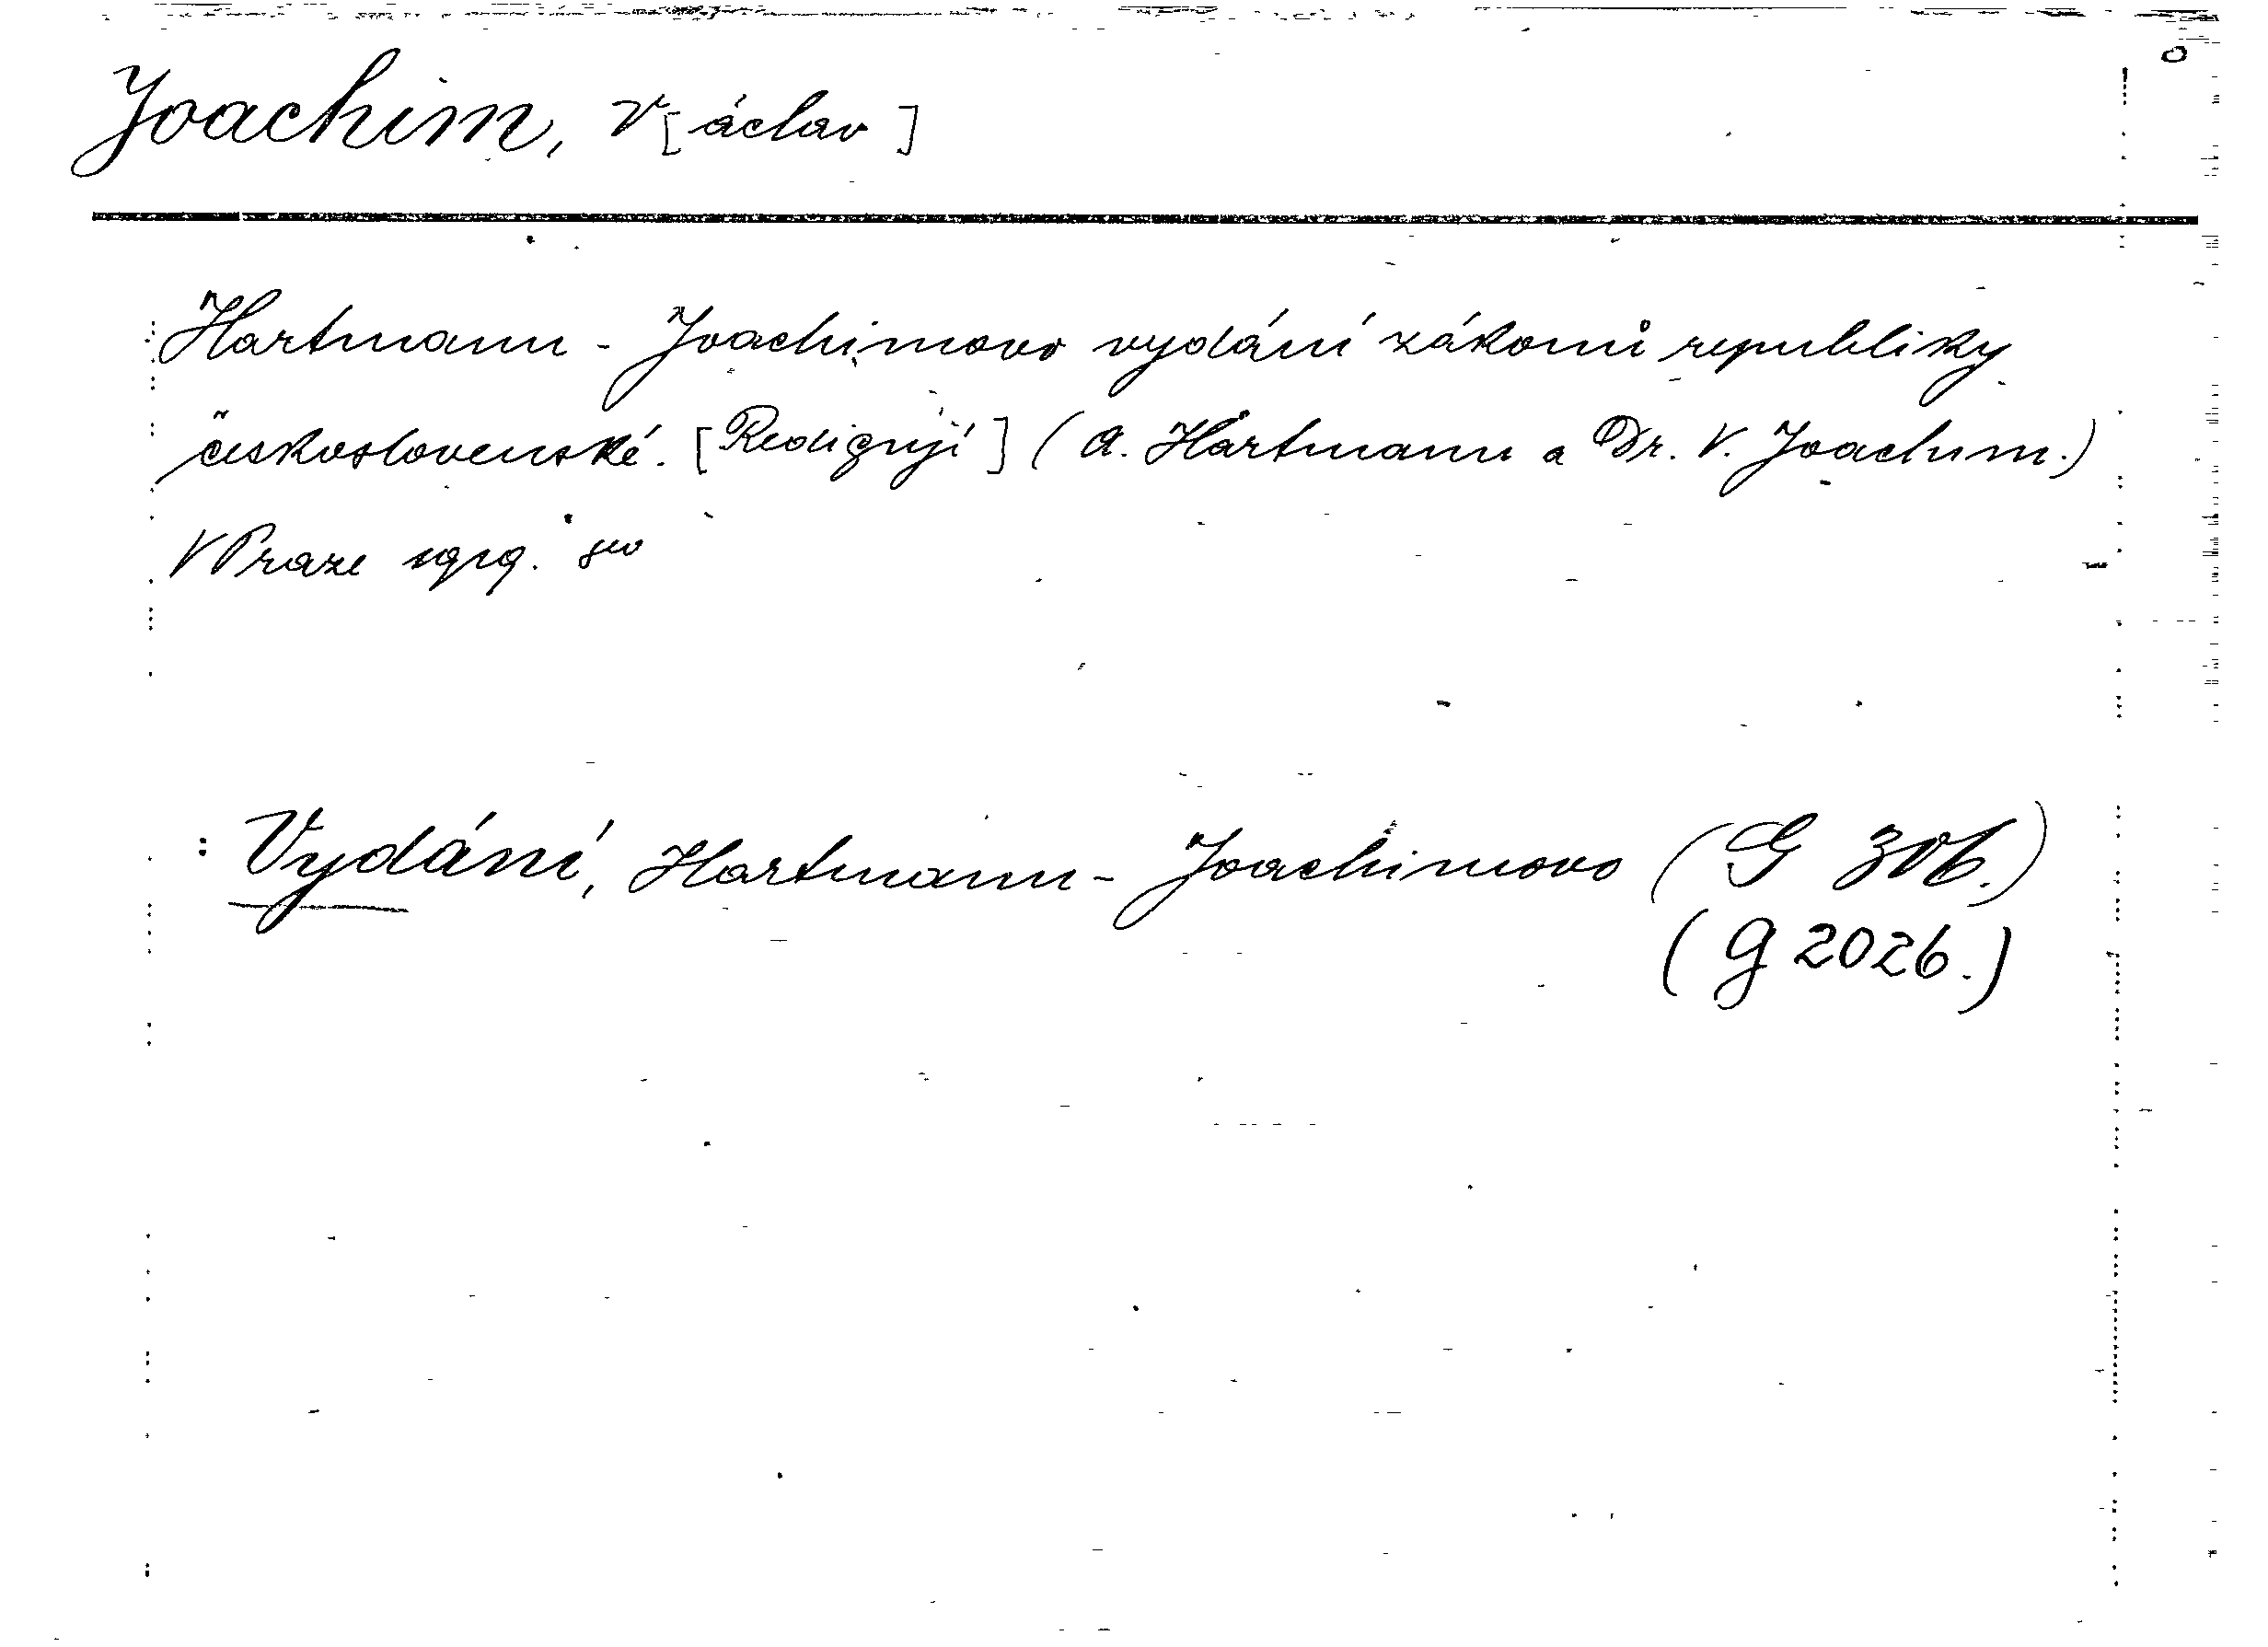 Joachim, V[áclav]
Hartmann - Joachimovo vydání zákonů republiky
československé. [Redigují] (A. Hartmann a Dr. V. Joachim.)
V Praze 1919. 8vo
: Vydání, Hartmann - Joachimovo (G
(G 2026.)